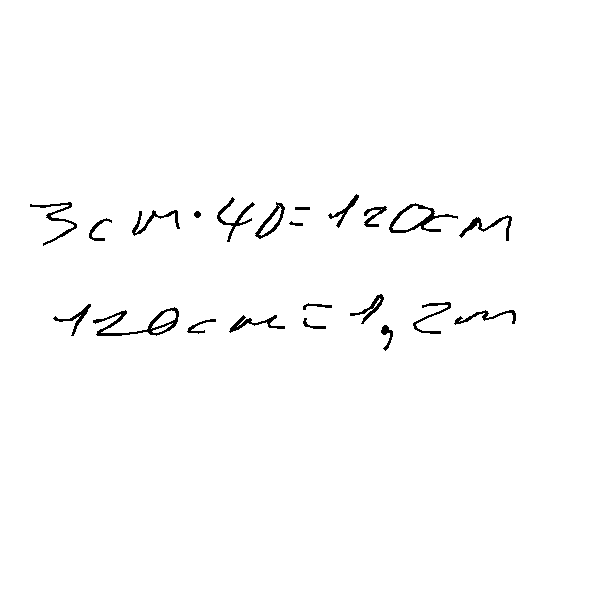 3cm·40=120cm
120cm=1,2m